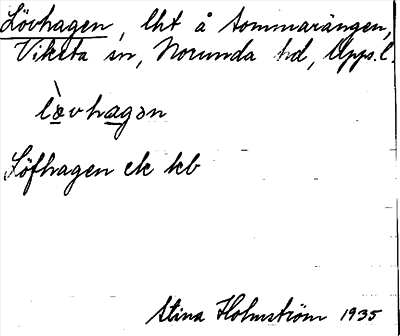 Lövhagen, lht å Sommarängen,
Viksta sn, Norunda hd, Upps. l.
lœ̀vhagən
Löfhagen ek kb
Stina Holmström 1935